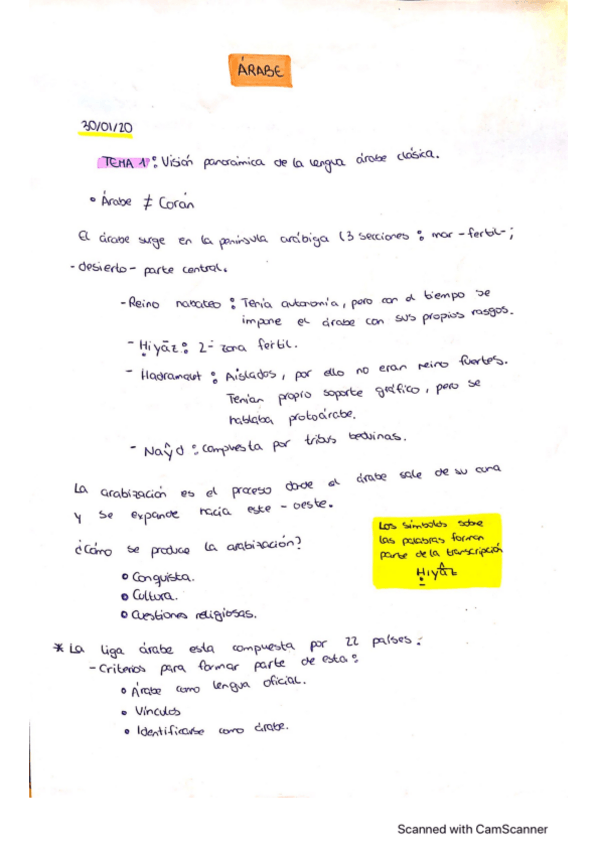 ÁRABE
30/01/20
TEMA 1: Visión panorámica de la lengua árabe clásica.
• Árabe ≠ Corán
El árabe surge en la península arábiga (3 secciones: mar -fertil-;
-desierto- parte central.
-Reino nabateo: Tenía autonomía, pero con el tiempo se
impone el árabe con sus propios rasgos.
- Ḥiyāz: 2- zona fertil.
- Hadramaut: Aislados, por ello no eran reino fuertes.
Tenían propio soporte gráfico, pero se
hablaba protoárabe.
- Naŷd: compuesta por tribus beduinas.
La arabización es el proceso donde el árabe sale de su cuna
y se expande hacia este - oeste.
¿Cómo se produce la arabización?
• Conquista.
• Cultura.
• Cuestiones religiosas.
Los símbolos sobre
las palabras forman
parte de la transcripción
Ḥiŷāz
* La liga árabe esta compuesta por 22 países:
- Criterios para formar parte de esta:
• Árabe como lengua oficial.
• Vínculos
• Identificarse como árabe.
Scanned with CamScanner